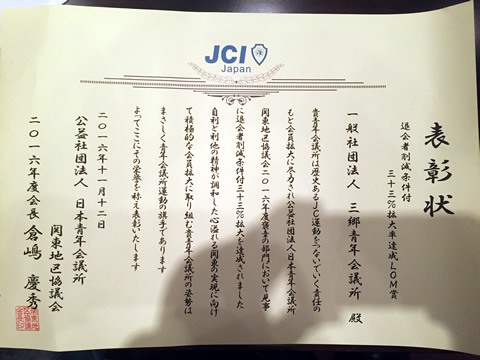 JCI
Japan
表彰状
退会者削減条件付
三十三%拡大率達成LOM賞
一般社団法人 三郷青年会議所 殿
貴青年会議所は歴史あるJC運動をつないでいく責任の
もと会員拡大に尽力され公益社団法人日本青年会議所
関東地区協議会2016年度褒章の部門において見事
に退会者削減条件付三十三%拡大を達成されました
自利と利他の精神が調和した心溢れる関東の実現に向け
て積極的な会員拡大に取り組む貴青年会議所の姿勢は
まさしく青年会議所運動の旗手であります
よってここにその栄誉を称え表彰いたします
二〇一六年十一月十二日
公益社団法人 日本青年会議所
関東地区協議会
二〇一六年度会長 倉嶋 慶秀